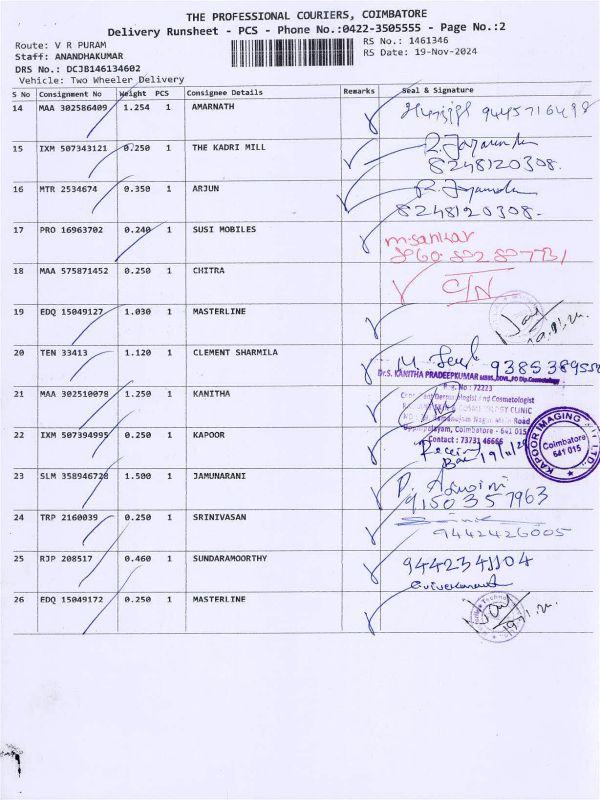 THE PROFESSIONAL COURIERS, COIMBATORE
Delivery Runsheet - PCS - Phone No.:0422-3505555 - Page No.:2
Route: V R PURAM
RS No.: 1461346
Staff: ANANDHAKUMAR
RS Date: 19-Nov-2024
DRS No.: DCJB146134602
Vehicle: Two Wheeler Delivery
S No Consignment No Weight PCS Consignee Details Remarks Seal & Signature
14 MAA 302586409 1.254 1 AMARNATH
15 IXM 507343121 0.250 1 THE KADRI MILL
8248120308.
16 MTR 2534674 0.350 1 ARJUN
8248120308.
17 PRO 16963702 0.240 1 SUSI MOBILES m.sankar
18 MAA 575871452 0.250 1 CHITRA C/N
19 EDQ 15049127 1.030 1 MASTERLINE
20 TEN 33413 1.120 1 CLEMENT SHARMILA
Dr.S. KANITHA PRADEEPKUMAR
Reg. No : 72223
21 MAA 302510078 1.250 1 KANITHA
Contact : 73731 46666
22 IXM 507394995 0.250 1 KAPOOR
KAPOOR IMAGING
Coimbatore
641 015
23 SLM 358946728 1.500 1 JAMUNARANI
9150357963
24 TRP 2160039 0.250 1 SRINIVASAN
9442426005
25 RJP 208517 0.460 1 SUNDARAMOORTHY 9442341104
26 EDQ 15049172 0.250 1 MASTERLINE